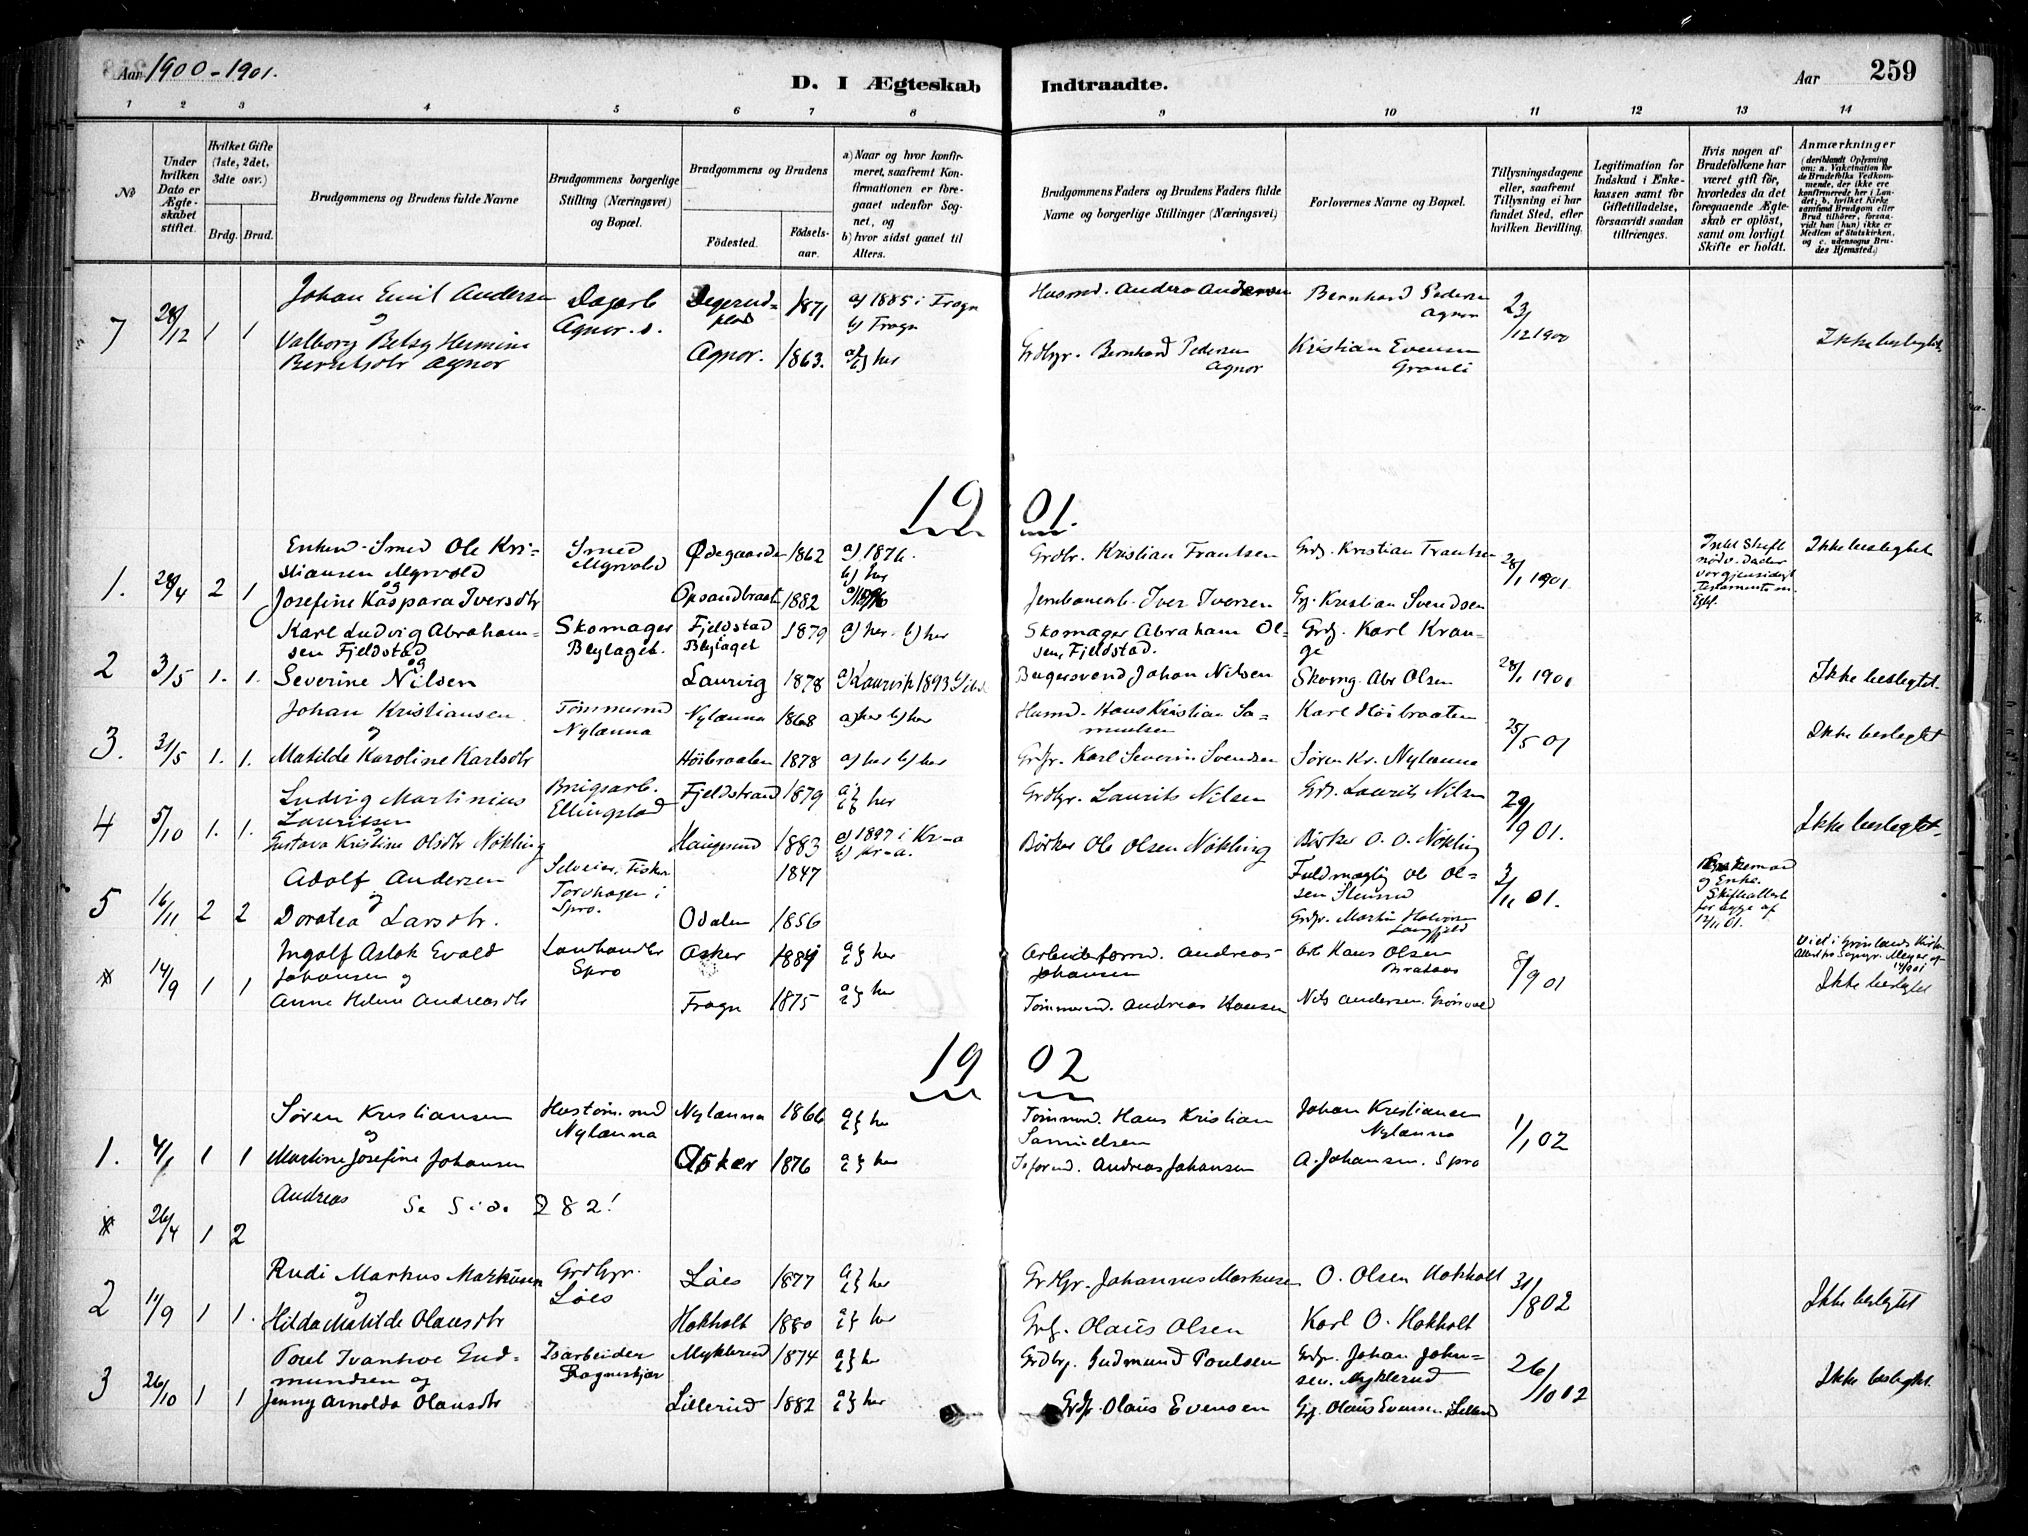 Aar 1900-1901.
D. I Ægteskab Indtraadte.
Aar 259
1 2 3 4 5 6 7 8 9 10 11 12 13 14
No
Under hvilken Dato er Ægteskabet stiftet.
Hvilket Gifte (1ste, 2det, 3die osv.)
Brdg. Brud.
Brudgommens og Brudens fulde Navne
Brudgommens borgerlige Stilling (Næringsvei) og Bopæl.
Brudgommens og Brudens
Födested.
Födselsaar.
a) Naar og hvor konfirmeret, saafremt Konfirmationen er foregaaet udenfor Sognet, og
b) hvor sidst gaaet til Alters.
Brudgommens Faders og Brudens Faders fulde Navne og borgerlige Stillinger (Næringsvei)
Forlovernes Navne og Bopæl.
Tillysningsdagene eller, saafremt Tillysning ei har fundet Sted, efter hvilken Bevilling.
Legitimation for Indskud i Enkekassen samt for Giftetilladelse, forsaavidt saadan tiltrænges.
Hvis nogen af Brudefolkene har været gift før, hvorledes da det foregaaende Ægteskab er opløst, samt om lovligt Skifte er holdt.
Anmærkninger
(deriblandt Oplysning om: a. Vakcination for de Brudefolks Vedkommende, der ikke ere konfirmerede her i Landet; b. hvilket Kirkesamfund Brudgom eller Brud tilhører, forsaavidt han (hun) ikke er Medlem af Statskirken, og c. udensogns Brudes Hjemsted.)
7 28/12 1 1 Johan Emil Andersen Dagarb Degerud- 1871 a) 1885 i Frogn Husmd. Anders Andersen Bernhard Pedersen 23
og Agnor. plad b) Frogn Agnor /12 1900
Valborg Betsy Hermine Agnor. 1863. a) b) her Grdbgr. Bernhard Pedersen Kristian Evensen Ikke beslegtet.
Berntsdtr Agnor Agnor Granli
1901.
1. 28/4 2 1 Enkem. Smed Ole Kri- Smed Ødegaarden 1862 a) 1876. Grdbr. Kristian Frantsen Grdb. Kristian Frantsen 28/1 1901. Ikke beslegtet
stiansen Myrvold Myrvold b) her
og
Josefine Kaspara Iversdtr Opsandbraaten 1882 Jernbanearb. Iver Iversen Kristian Svendsen
2 3/5 1. 1. Karl Ludvig Abraham- Skomager Fjeldstad 1879 a) her. b) her Skomager Abraham Ol- Karl Kran-
sen Fjeldstad Blylaget. Blylaget sen, Fjeldstad. ge
og
Severine Nilsen Laurvig 1878 a) Laurvik 1893 Johan Nilsen Skomg. Abr Olsen 28/1 1901 Ikke beslegtet.
3. 31/5 1. 1. Johan Kristiansen Tömmermd Nylænna 1868 a) her b) her Hans Kristian Sa- Karl Höibraaten 25/5 01 Ikke beslegtet
og Nylænna muelsen
Matilde Karoline Karlsdtr Höibraaten 1878 a) her b) her Karl Severin Svendsen Søren Kr. Nylænna
4 5/10 1. 1. Ludvig Martinius Brugsarb. Fjeldstrand 1879 a} b} her Grdbgr. Laurits Nilsen Laurits Nilsen 29/9 01. Ikke beslegtet.
Lauritsen Ellingstad
og
Gustava Kristine Olsdtr Nökling Haugesund 1883 a) 1897 i Kr-a b) Kr-a. Bödker Ole Olsen Nökling Bödker O. O. Nökling
5 16/11 2 2 Adolf Andersen Selveier, Fisker 1847 Fuldmægtig Ol Ol- 3/11 01. Enkemand
og Torvhagen i sen og Enke.
Dorotea Larsdtr. Spro. Odalen 1856 Martin Halvorsen 12/11 01.
* 14/9 1 1 Ingolf Aslak Evald Landhandler Asker 1884 a} b} her Arbeidsformd. Andreas Arb Hans Olsen 8/9 01 Viet i Grønlands Kirke
Johansen og Spro Johansen Brataas 14/9 01
Anne Helene Andreasdtr Frogn 1875 a} b} her Tömmermd. Andreas Hansen Nils Andersen. Grönvold Ikke beslegtet
1902
1. 4/1 1 1 Søren Kristiansen Hustöm.md Nylænna 1866 a} b} her Tömmd. Hans Kristian Johan Kristiansen 1/1 02
og Nylænna Samuelsen Nylænna
Martine Josefine Johansen Asker 1876 a} b} her Andreas Johansen A. Johansen. Spro
* 26/4 1 2 Andreas Se Side 282!
2 11/9 1 1. Rudi Markus Markusen Grdbgr. Løes 1877 a} b} her Grdbgr. Johannes Markusen O. Olsen Hokholt 31/8 02 Ikke beslegtet
og Løes
Hilda Matilde Olausdtr Hokholt 1880 a} b} her Olaus Olsen Karl O. Hokholt
3 26/10 1 1 Poul Ivanhoe Gud- Isarbeider Myklerud 1874 a} b} her Grdbg. Gudmund Poulsen Johan Joh- 26/10 02 Ikke beslegtet.
mundsen og sen. Myklerud
Jenny Arnolda Olausdtr Lillerud 1882 a} b} her Olaus Evensen Olaus Evensen